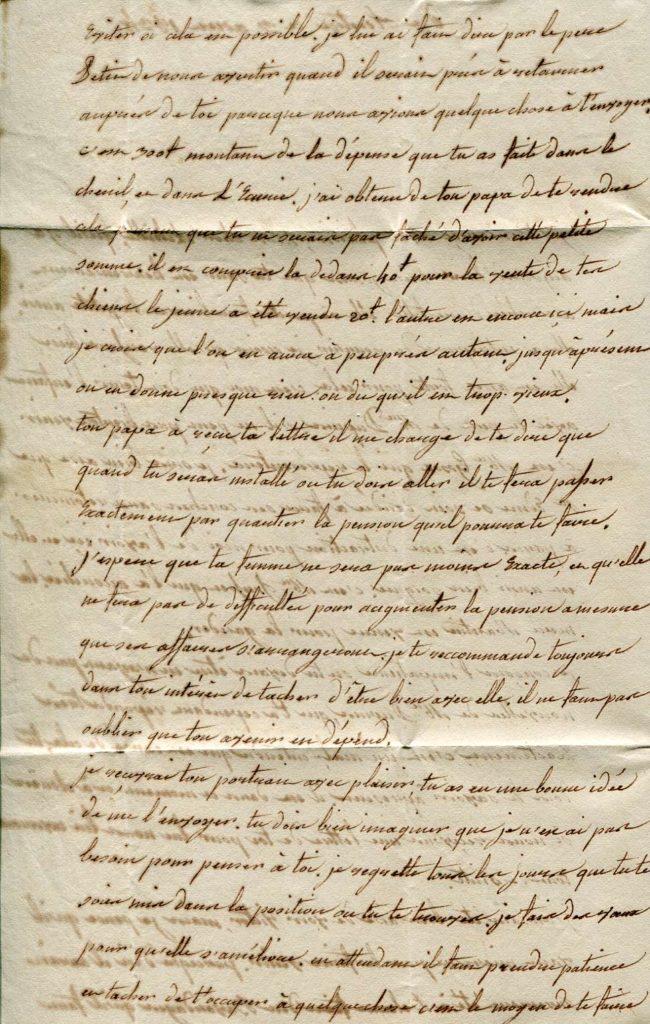 Exiter si cela est possible. je lui ai fait dire par le pere
de nous avertir quand il serait près à retourner
auprès de toi parceque nous avions quelque chose à t'envoyer.
c'est 300t montant de la dépense que tu as faite dans le
chenil et dans l'Ecurie. j'ai obtenu de ton papa de te rendre
cela que tu ne serais pas faché d'avoir cette petite
somme. il est compris la dedans 40t pour la vente de tes
chiens le jeune a été vendu 20t. l'autre est encore ici mais
je crois que l'on en aura à peuprés autant. jusqu'àprésent
on en donne presque rien. on dit qu'il est trop vieux.
ton papa à récu ta lettre il me charge de te dire que
quand tu seras installé ou tu dois aller il te fera passer
Exactement par quartier la pension qu'il pourra te faire.
j'espere que ta femme ne sera pas moins Exacte, et qu'elle
ne fera pas de difficultée pour augmenter la pension amesure
que ses affaires s'arrangeront. je te recommande toujours
dans ton intérêt de tacher d'être bien avec elle. il ne faut pas
oublier que ton avenir en dépend.
je recevrai ton portrait avec plaisir tu as eu une bonne idée
de me l'envoyer. tu dois bien imaginer que je n'en ai pas
besoin pour penser à toi. je regrette tous les jours que tu te
sois mis dans la position ou tu te trouves. je fais des vœux
pour qu'elle s'améliore. en attendant il faut prendre patience
et tacher de t'occuper à quelque chose c'est le moyen de te faire